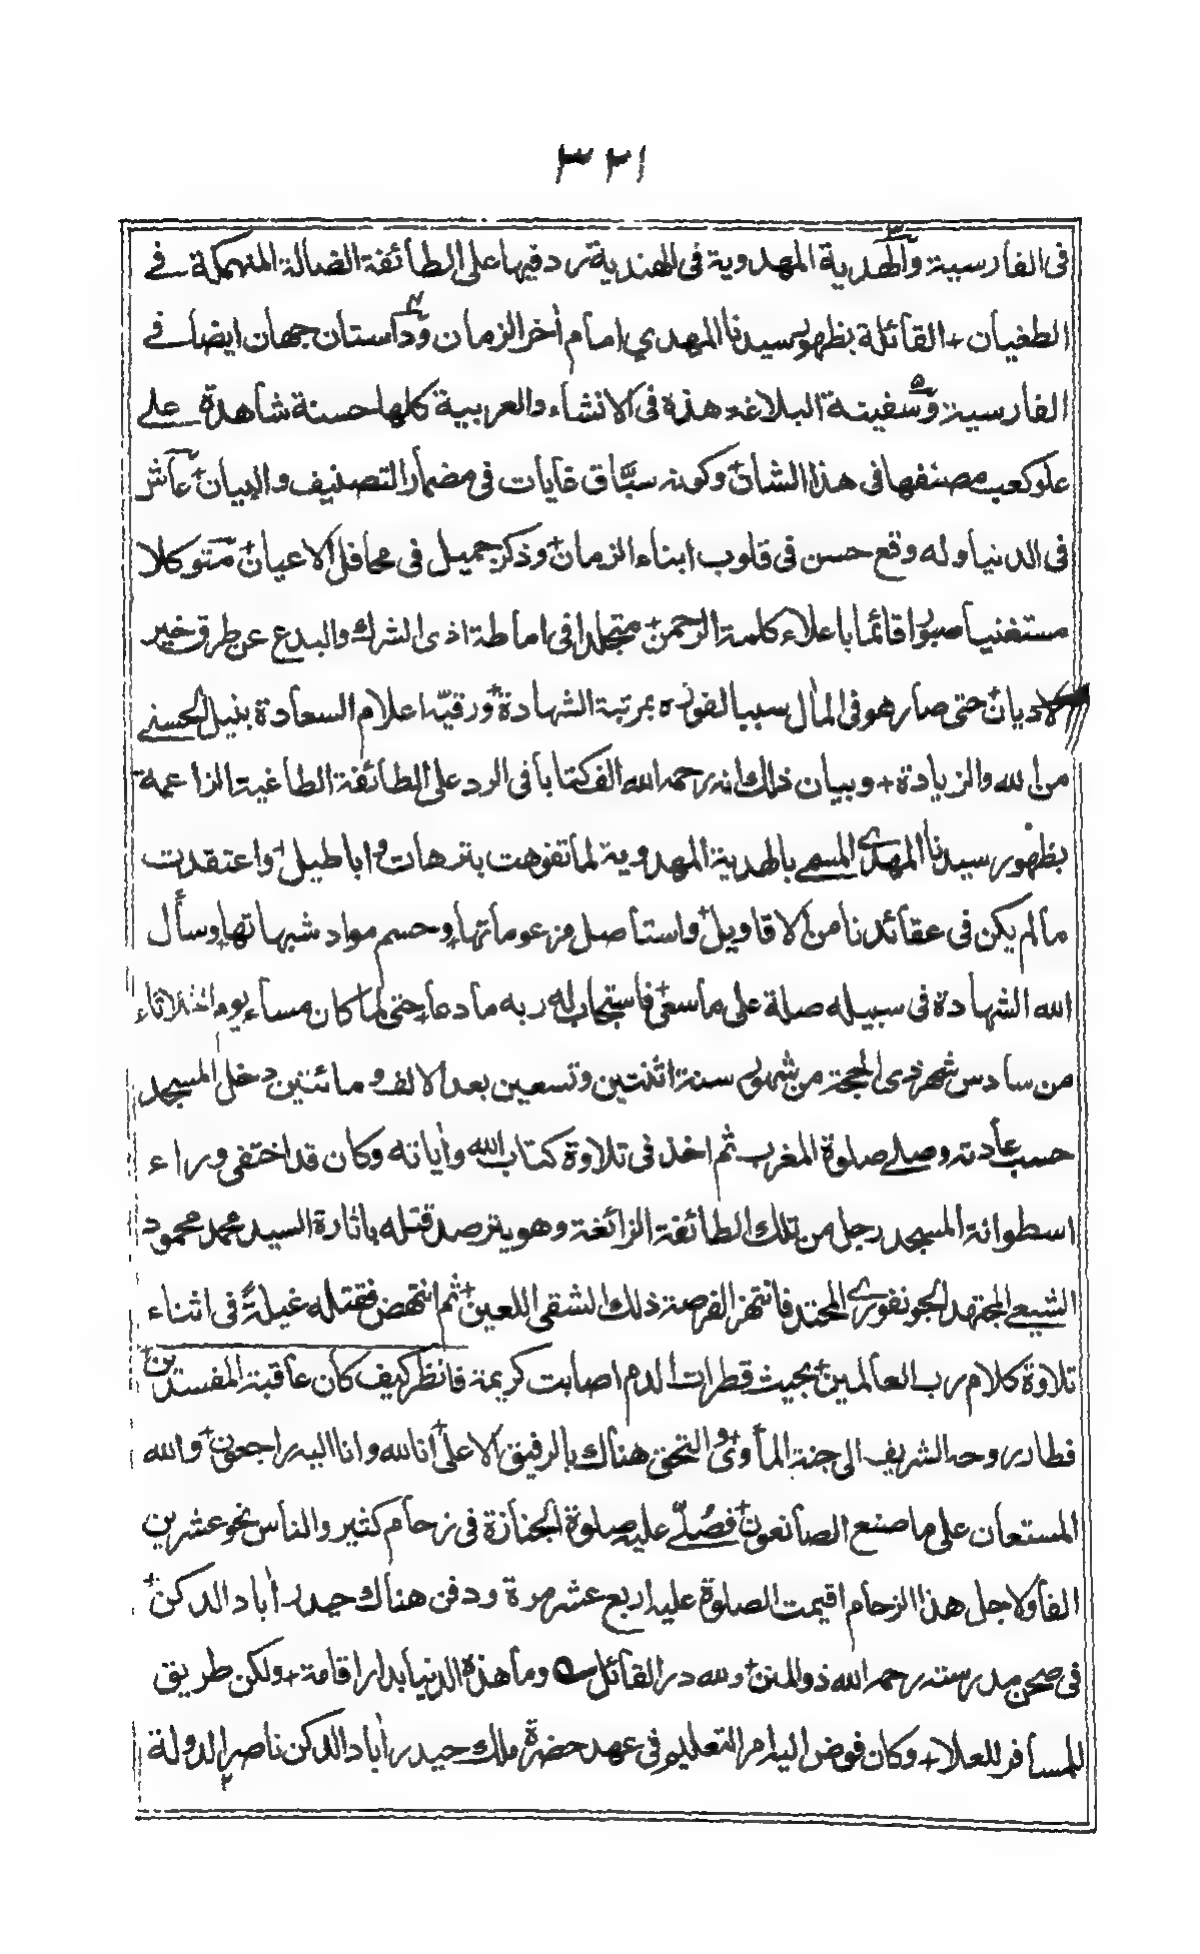 ٣٢١
في الفارسية والهدية المهدوية في الهندية رد فيها على الطائفة الضالة المنهمكة في
الطغيان + القائلة بظهور سيدنا المهدي امام أخر الزمان وداستان جهان ايضا في
الفارسية وسفينة البلاغة هذه في الانشاء والعربية كلها حسنة شاهدة على
علو كعب مصنفها في هذا الشان + وكونه سبّاق غايات في مضمار التصنيف والبيان + عاش
في الدنيا وله وقع حسن في قلوب ابناء الزمان + وذكر جميل في محافل الاعيان + متوكلا
مستغنيا صبورا قائما باعلاء كلمة الرحمن + متجلدا في اماطة اذى الشرك والبدع عن طرق خير
الاديان + حتى صار هو في المال سببا لفوزه بمرتبة الشهادة + ورقيّه اعلام السعادة بنيل الحسنى
من الله والزيادة + وبيان ذلك انه رحمه الله الف كتابا في الرد على الطائفة الطاغية الزاعمة
بظهور سيدنا المهدي المسمى بالهدية المهدوية لما تفوهت بترهات واباطيل + واعتقدت
مالم يكن في عقائدنا من الاقاويل + واستاصل مزعوماتها + وحسم مواد شبهاتها + وسأل
الله الشهادة في سبيله صلة على ما سعى + فاستجاب له ربه ما دعا + حتى لما كان مساء يوم الثلاثاء
من سادس شهر ذي الحجة من شهور سنة اثنتين وتسعين بعد الالف ومائتين دخل المسجد
حسب عادته وصلى صلوة المغرب ثم اخذ في تلاوة كتاب الله وأياته وكان قد اختفى وراء
اسطوانة المسجد رجل من تلك الطائفة الزائغة وهو يترصد قتله باثارة السيد محمد محمود
الشيعي المجتهد الجونفوري المحتد فانتهز الفرصة ذلك الشقي اللعين + ثم انتهض فقتله غيلةً في اثناء
تلاوة كلام رب العالمين + بحيث قطرات الدم اصابت كريمة فانظر كيف كان عاقبة المفسدين +
فطار روحه الشريف الى جنة المأوى + والتحق هناك بالرفيق الاعلى + انا لله وانا اليه راجعون + والله
المستعان على ما صنع الصانعون + فصُلّي عليه صلوة الجنازة في زحام كثير والناس نحو عشرين
الفا ولاجل هذا الزحام اقيمت الصلوة عليه اربع عشر مرة ودفن هناك حيدر أباد الدكن +
في صحن مدرسته رحمه الله ذو المنن + ولله در القائل وما هذه الدنيا بدار اقامة + ولكن طريق
للمسافر للعلا + وكان فوض اليه امر التعليم في عهد حضرة ملك حيدر أباد الدكن ناصر الدولة